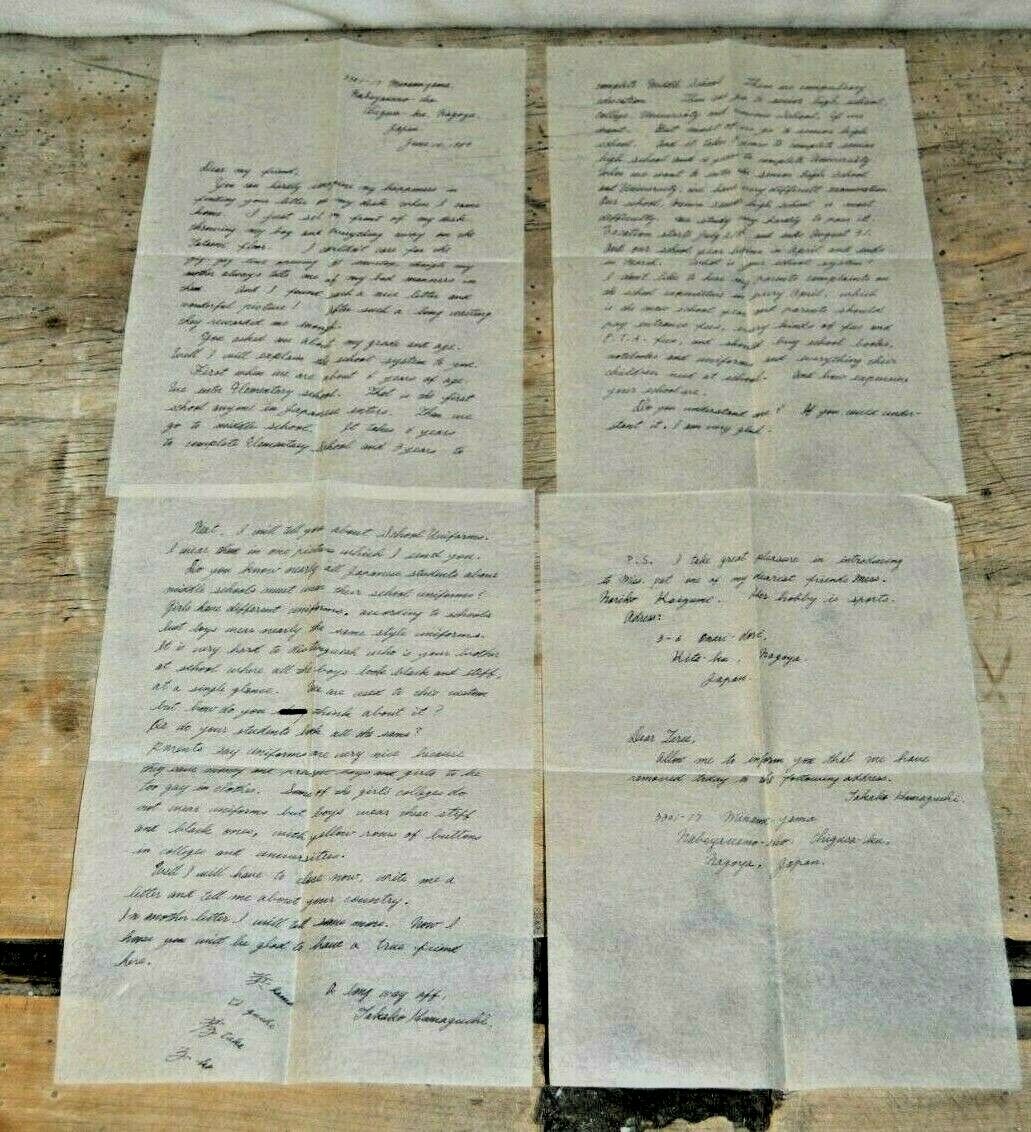 3301-17 Minamiyama
Nabeyaueno-cho
Chigusa-ku, Nagoya
Japan
June
Dear my friend,
You can hardly imagine my happiness in
finding your letter on my desk when I came
home. I just sat in front of my desk
throwing my bag and everything away on the
Tatami floor. I couldn't care for the
my
mother always tells me of my bad manners in
them. And I found such a nice letter and
wonderful picture! After such a long waiting
they rewarded me enough.
You asked me about my grade and age.
Well I will explain the school system to you.
First when we are about 6 years of age
We enter Elementary school. That is the first
school anyone in Japanese enters. Then we
go to middle school. It takes 6 years
to complete Elementary School and 3 years to
complete Middle School. These are compulsory
education. Then we go to senior high school,
college, University and School, if we
want. But most of us go to senior high
school. And it takes 3 years to complete senior
high school and 4 years to complete University
When we want to enter the senior high school
and University, we have very difficult examination
Our school, senior high school is most
difficultly. We study very hardly to pass it.
Vacation starts July 21th and ends August 31.
And our school year begins in April and ends
in March. What is your school system?
I don't like to hear my parents complaints on
the school expenditure in every April, which
is the new school year and parents should
pay entrance fees, every kinds of fee and
P.T.A. fee, and should buy school books,
notebooks and uniforms and everything their
children need at school. And how expensive
your school are.
Do you understand me? If you could under-
stand it, I am very glad.
Next, I will tell you about School Uniforms.
I wear one in one picture which I send you.
Do you know nearly all Japanese students above
middle schools must wear their school uniforms?
Girls have different uniforms, according to schools
but boys wear nearly the same style uniforms.
It is very hard to distinguish who is your brother
at school where all the boys look black and stiff,
at a single glance. We are used to this custom
but how do you think about it?
Or do your students look all the same?
Parents say uniforms are very nice because
they save money and prevent boys and girls to be
too gay in clothes. Some of the girls colleges do
not wear uniforms but boys wear these stiff
and black ones, with yellow rows of buttons
in colleges and universities.
Well I will have to close now, write me a
letter and tell me about your country.
In another letter I will tell some more. Now I
hope you will be glad to have a true friend
here.
A long way off,
Takako Hamaguchi.
hama
口 guchi
孝 taka
子 ko
P.S. I take great pleasure in introducing
to Miss. Pat one of my dearest friends Miss.
Noriko Her hobby is sports.
Adress:
3-6 Ozone-dori,
Kita-ku, Nagoya
Japan
Dear Teree,
Allow me to inform you that we have
removed today to the following address.
Takako Hamaguchi.
3301-17 Minami-yama
Nabeyaueno-cho Chigusa-ku,
Nagoya, Japan.